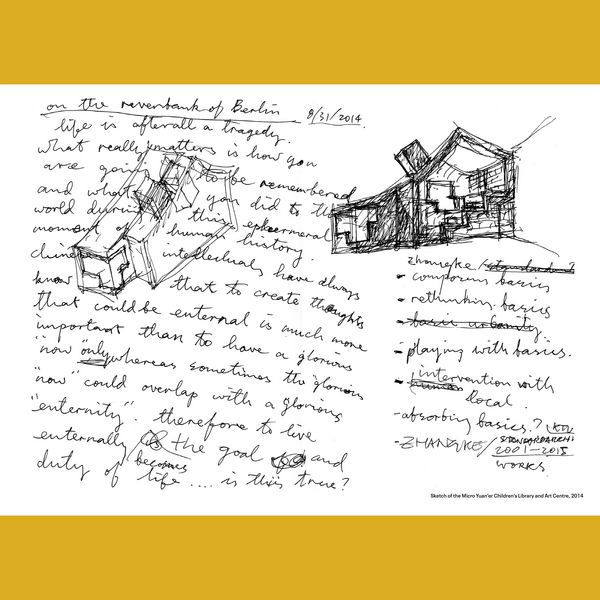 on the reverbank of Berlin 8/31/2014.
life is afterall a tragedy.
what really matters is how you
are going to be remembered
and what you did to the
world during this ephermeral
moment of human history.
chinese intellectuals have always
know that to create thoughts
that could be enternal is much more
important than to have a glorious
"now" only whereas sometimes the glorious
"now" could overlap with a glorious
"enternity". therefore to live
enternally becomes the goal and
duty of life .... is this true?
zhangke/standard...?
- composing basics
- rethinking basics
- basic urbanity
- playing with basics.
- intervention with
local.
- absorbing basics.?
- ZHANGKE/STANDARDARCHI
2001-2015
WORKS
Sketch of the Micro Yuan'er Children's Library and Art Centre, 2014